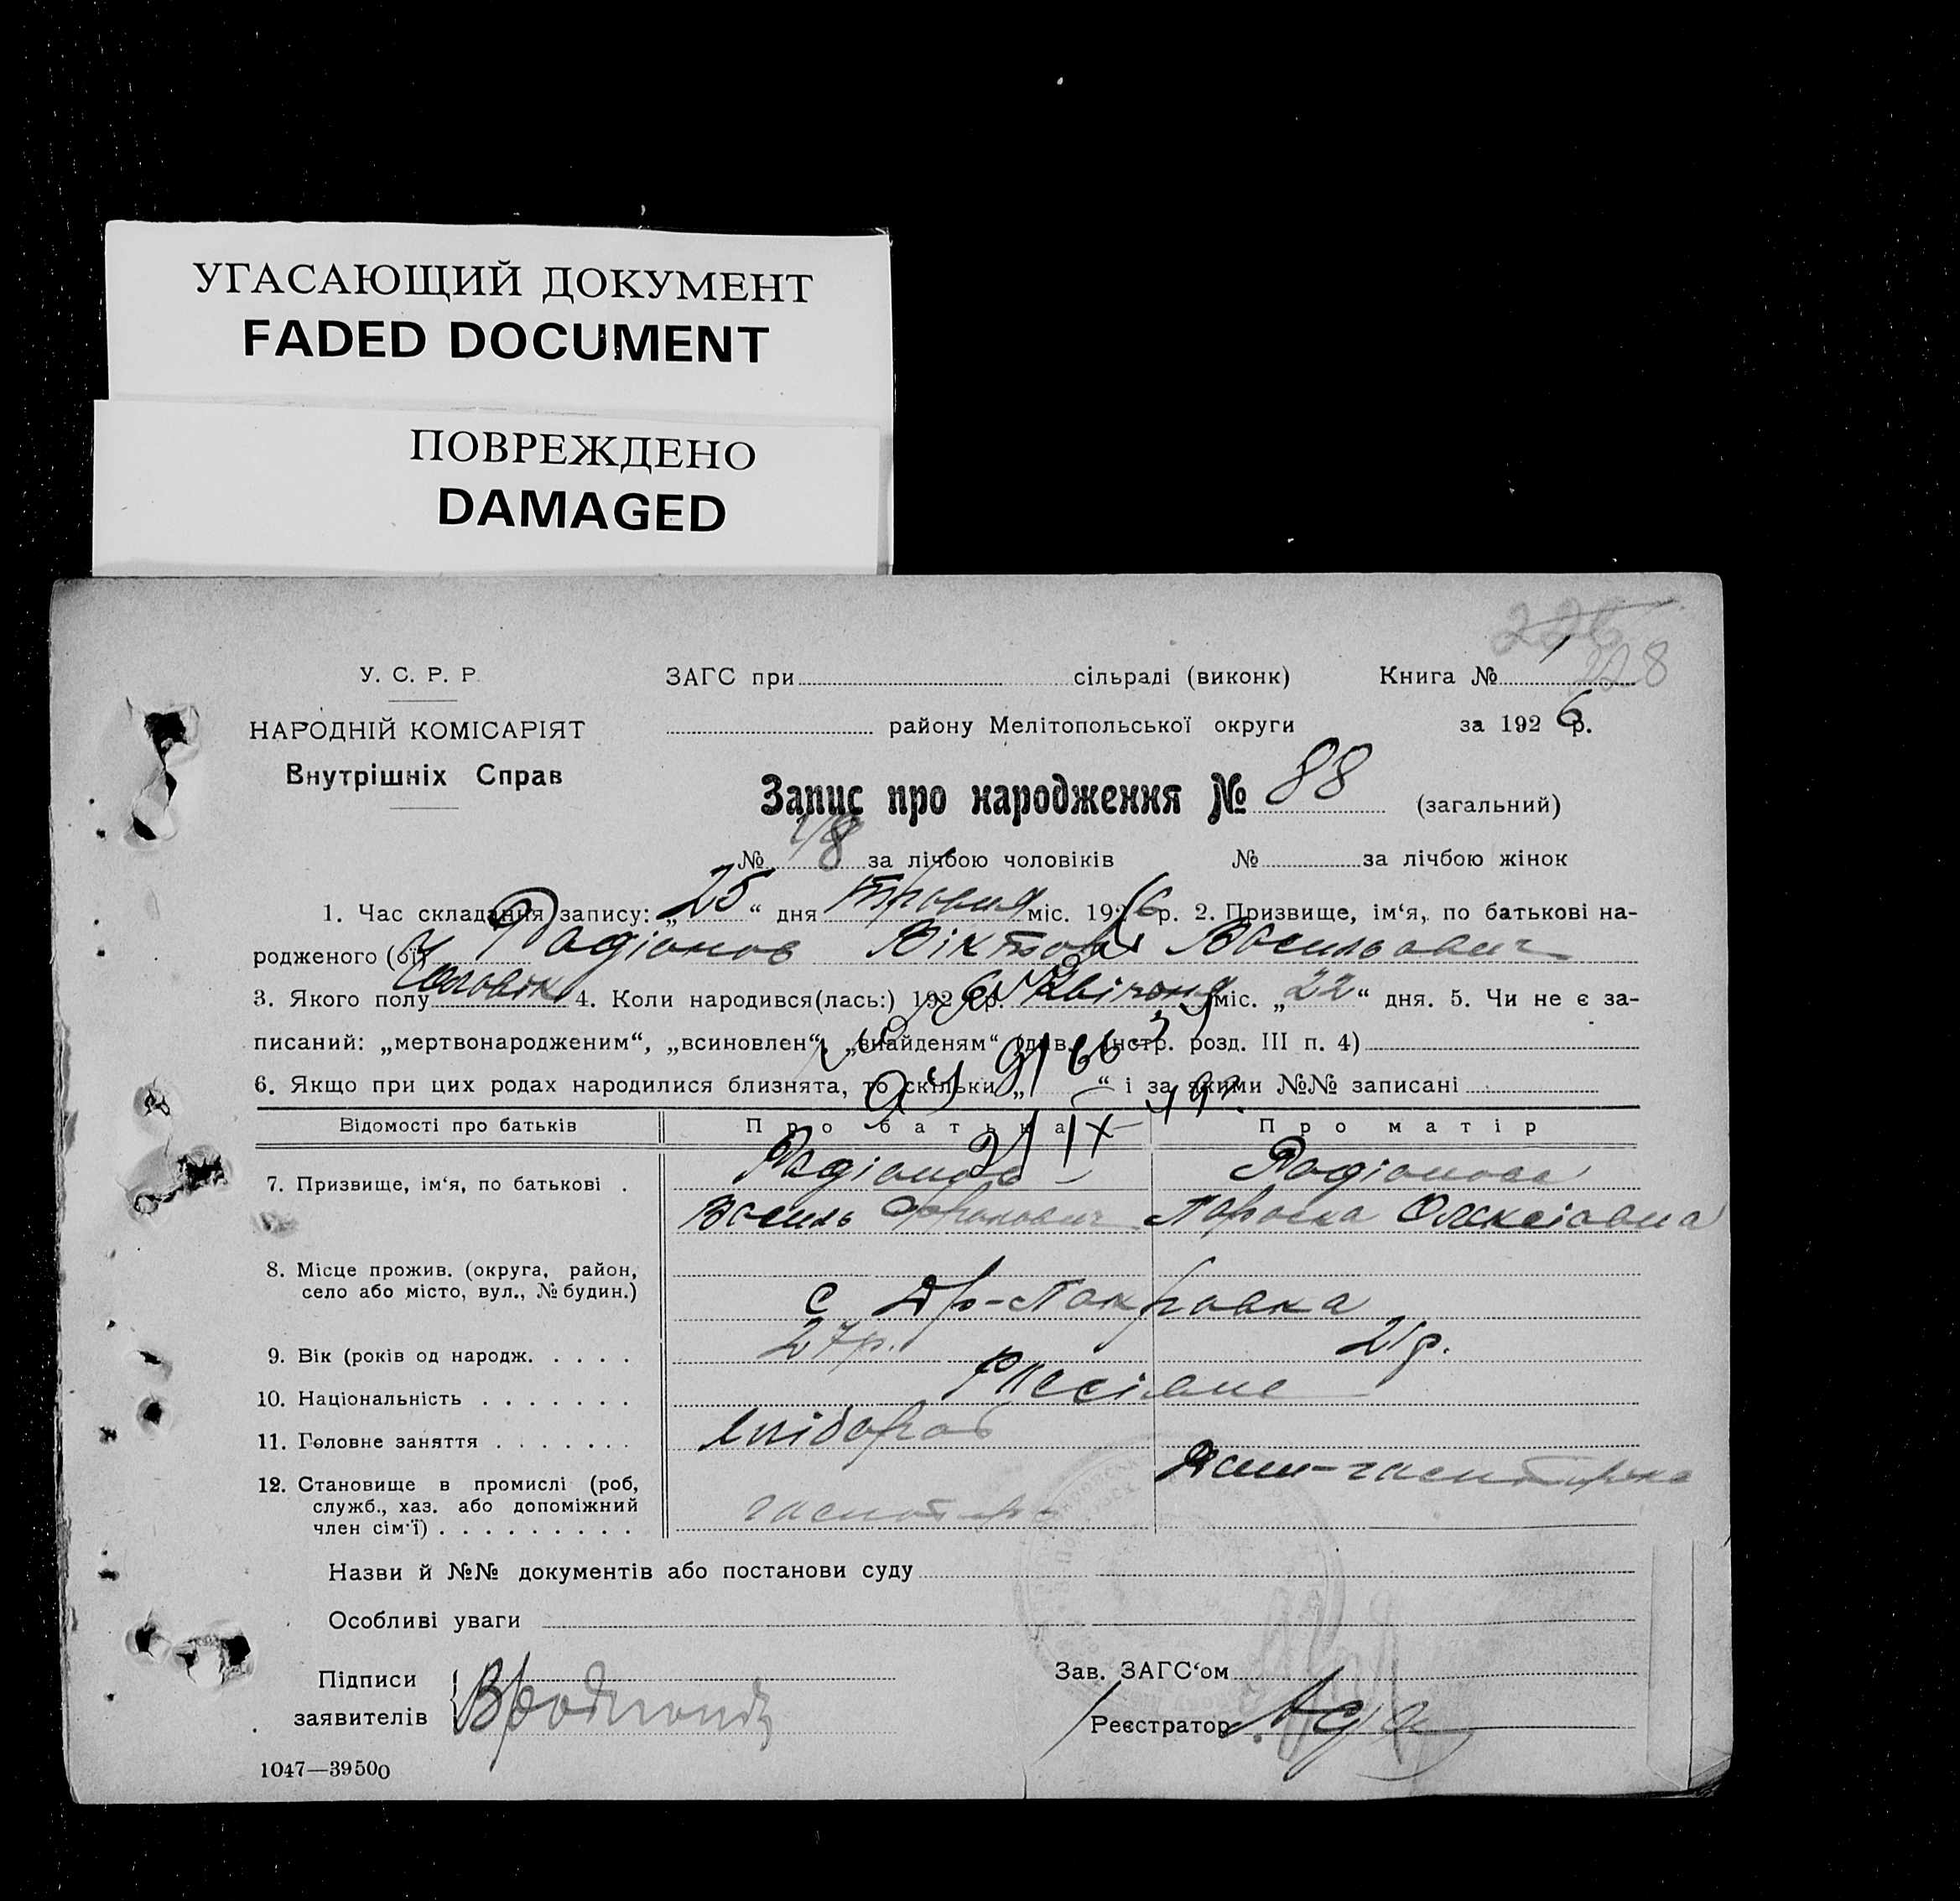 УГАСАЮЩИЙ ДОКУМЕНТ
FADED DOCUMENT
ПОВРЕЖДЕНО
DAMAGED
226
228
У. С. Р. Р.
НАРОДНІЙ КОМІСАРІЯТ
Внутрішніх Справ
ЗАГС при сільраді (виконк) Книга № 1
району Мелітопольської округи за 1926 р.
Запис про народження № 88 (загальний)
№ 48 за лічбою чоловіків № за лічбою жінок
1. Час складання запису: „25“ дня травня міс. 1926 р. 2. Призвище, ім‘я, по батькові на-
родженого (ої) Радіонов Віктор Васильович
3. Якого полу чоловік 4. Коли народився(лась:) 1926 р. Квітня міс. „22“ дня. 5. Чи не є за-
писаний: „мертвонародженим“, „всиновлен“, „знайденям“ (див. Інстр. розд. III п. 4)
6. Якщо при цих родах народилися близнята, то скільки „ “ і за якими №№ записані
Відомості про батьків Про батька Про матір
7. Призвище, ім‘я, по батькові . Радіонов Радіонова
Василь Параска Олексієвна
8. Місце прожив. (округа, район,
село або місто, вул., № будин.) с Др-Покровка
9. Вік (років од народж. . . . . 27р. 21р.
10. Національність . . . . . . .
11. Головне заняття . . . . . . . хлібороб
12. Становище в промислі (роб,
служб., хаз. або допоміжний
член сім‘ї) . . . . . . . . .
Назви й №№ документів або постанови суду
Особливі уваги
Підписи
заявителів
Зав. ЗАГС‘ом
Реєстратор
1047—39500